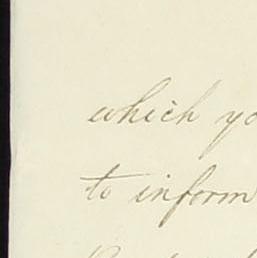 which yo
to inform